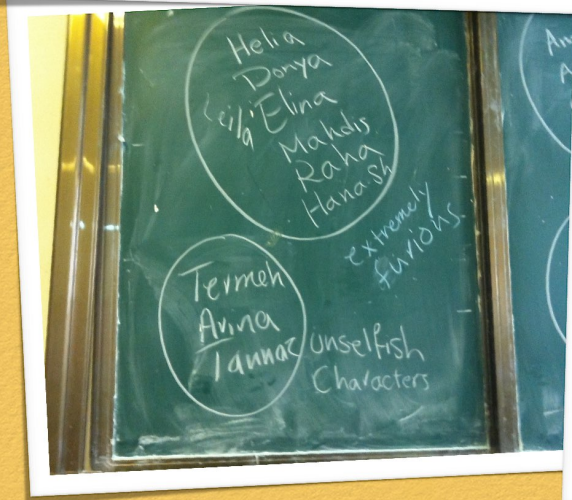 Helia
Donya
Leila Elina
Mahdis
Raha
Hanash
extremely
furious
Termeh
Arina
Tannaz
unselfish
Characters